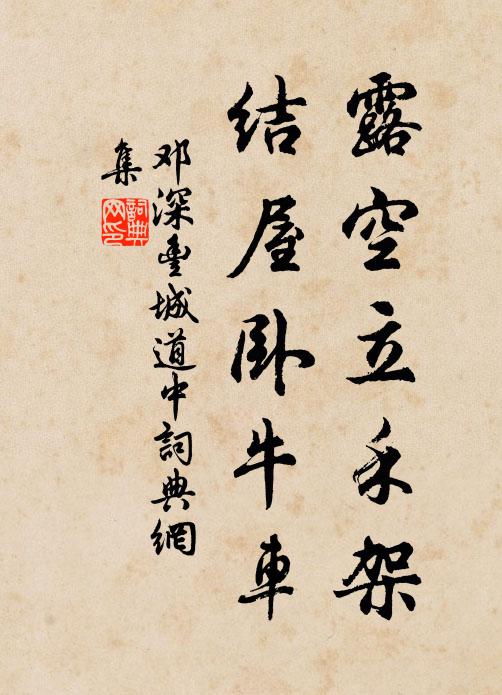 露空立禾架
结屋卧牛車
邓深豐城道中詞典網
集
詞典網印